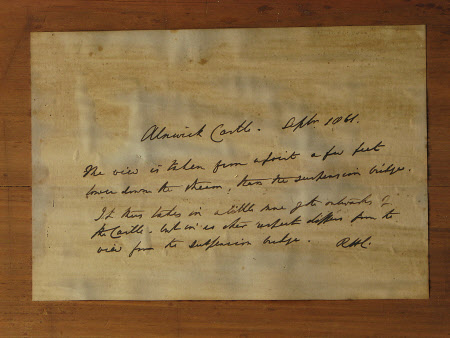 Alnwick Castle. Septbr. 1861.
The view is taken from a point a few feet
lower down the stream, than the suspension bridge.
It thus takes in a little more of the outworks of
the Castle. but in no other respect differs from the
view from the suspension bridge. RHC.